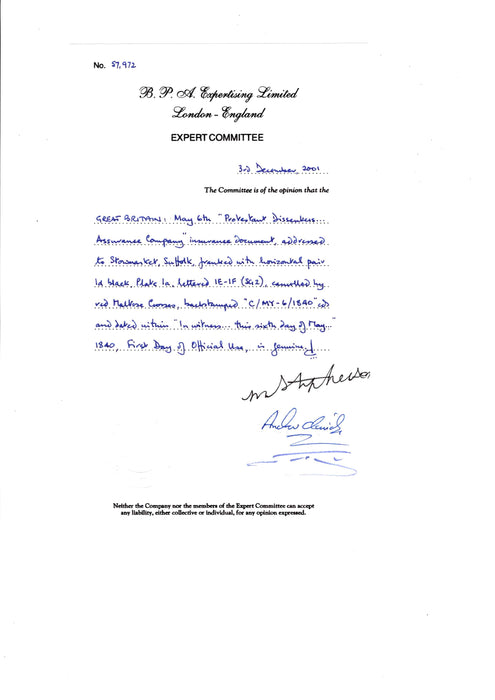 No. 57,972
B. P. A. Expertising Limited
London - England
EXPERT COMMITTEE
3rd December, 2001
The Committee is of the opinion that the
GREAT BRITAIN: May 6th "Protestant Dissenters...
Assurance Company" insurance document, addressed
to Stowmarket, Suffolk, franked with horizontal pair
1d black, Plate 1a, lettered IE-IF (SG2), cancelled by
red Maltese Crosses, backstamped "C/MY-6/1840" cds
and dated within "In witness... this sixth day of May..."
1840, First Day of Official Use, is genuine.
Neither the Company nor the members of the Expert Committee can accept
any liability, either collective or individual, for any opinion expressed.